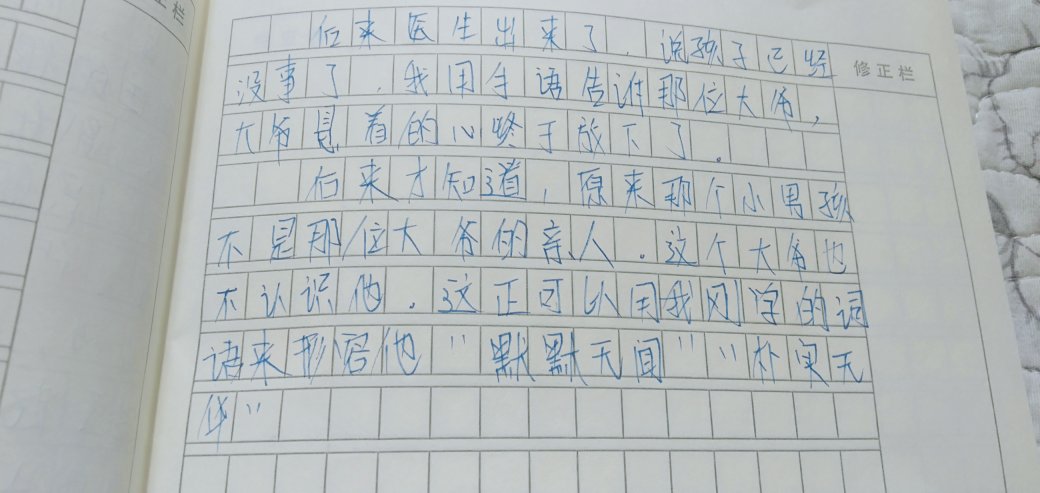 修正栏
后来医生出来了，说孩子已经
修正栏
没事了，我用手语告诉那位大爷，
大爷悬着的心终于放下了。
后来才知道，原来那个小男孩
不是那位大爷的亲人。这个大爷也
不认识他。这正可以用我刚学的词
语来形容他“默默无闻”“朴实无
华”